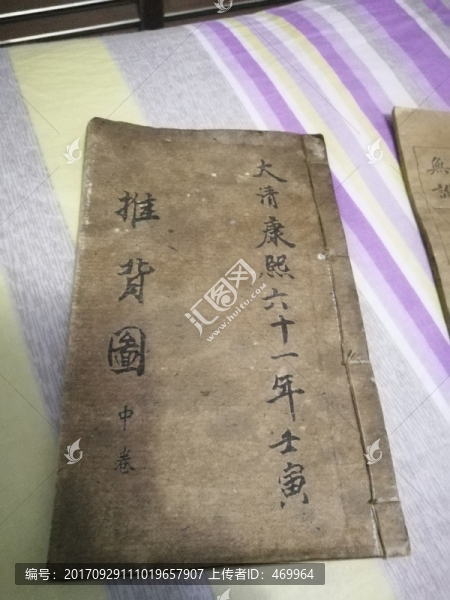 大清康熙六十一年壬寅
推背圖
中卷
汇图网
www.huitu.com
编号:20170929111019657907 上传者ID :469964